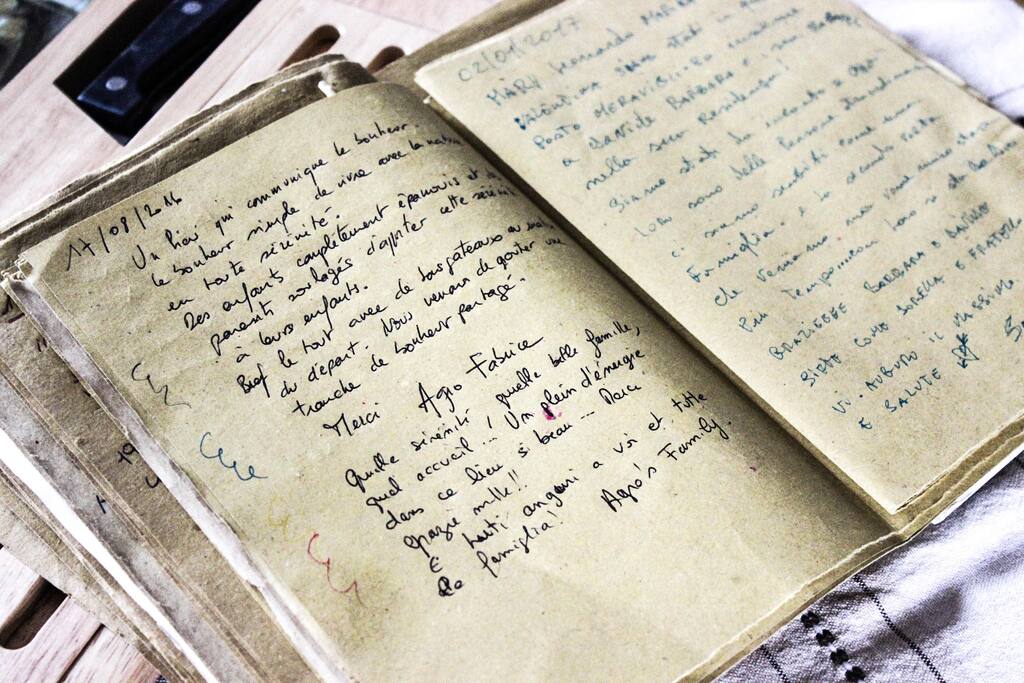 17/08/2016
Un lieu qui communique le bonheur,
le bonheur simple de vivre avec la nature
en toute sérénité.
Des enfants complètement épanouis et des
parents soulagés d'apporter cette sérénité
à leurs enfants.
Bref le tout avec de bons gâteaux au
du départ. Nous venons de goûter une
tranche de bonheur partagé.
Merci Ago Fabrice
Quelle sérénité, quelle belle famille,
quel accueil... Un plein d'énergie
dans ce lieu si beau... Merci
grazie mille!!
E tanti auguri a voi et tutte
la famiglia! Ago's Family.
02/01/2017
MARY Leonardo
VALENTINA siamo stati
POSTO MERAVIGLIOSO
a Davide BARBARA e
nella sua Residenza!
Siamo stati da
loro sono delle Persone
ci siamo sentiti come una
Famiglia. e la seconda volta
che veniamo mai
Più
GRAZIEEEE BARBARA e DAVIDE
SIETE COME SORELLA E FRATELLO
VI AUGURO IL MASSIMO
E SALUTE